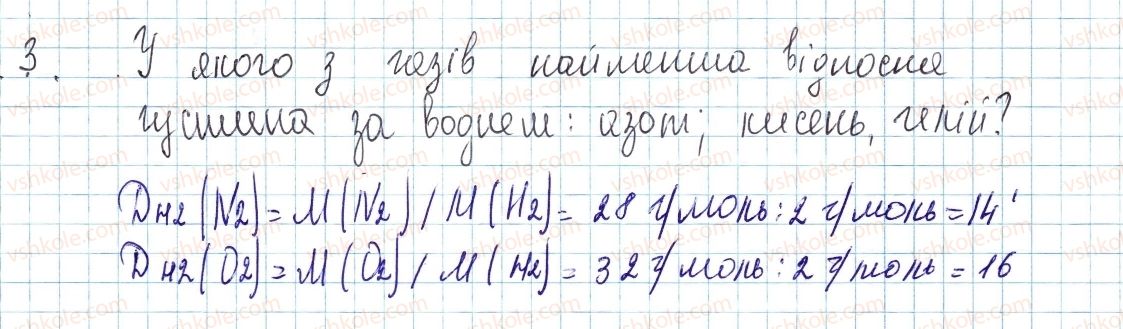 3. У якого з газів найменша відносна
густина за воднем: азот; кисень, гелій?
Dн2(N2)=M(N2)/M(H2)=28 г/моль:2 г/моль=14
Dн2(O2)=M(O2)/M(H2)=32 г/моль:2 г/моль=16